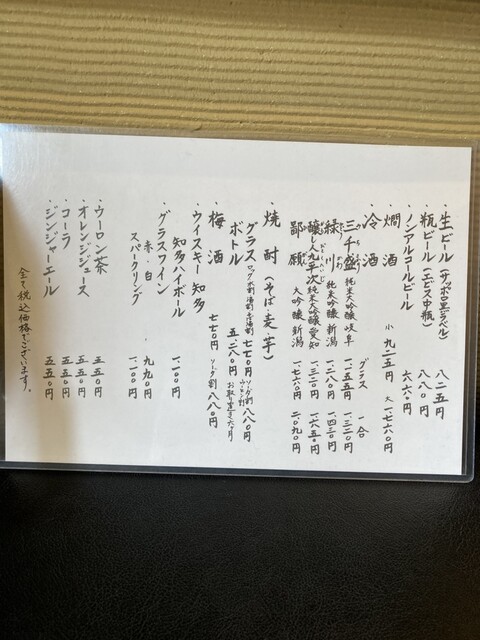 ・生ビール(サッポロ黒ラベル) 八二五円
瓶ビール(エビス中瓶) 八八〇円
・ノンアルコールビール 六六〇円
・燗酒 小 九二五円 大 一、七六〇円
・冷酒 グラス 一合
三千盛 純米大吟醸 岐阜 一、一五五円 一、三二〇円
緑川 純米吟醸 新潟 一、二八〇円 一、四三〇円
醸し人九平次 純米大吟醸 愛知 一、三二〇円 一、六五〇円
鄙願 大吟醸 新潟 一、七六〇円 二、〇九〇円
・焼酎(そば・麦・芋)
グラス ロック・水割・湯割・そば湯割 七七〇円 ソーダ割 ウーロン割 八八〇円
ボトル 五、二八〇円 お取り置き六ヶ月
・梅酒 七七〇円 ソーダ割 八八〇円
・ウイスキー 知多
知多ハイボール 一、一〇〇円
・グラスワイン
赤・白 九九〇円
スパークリング 一、一〇〇円
・ウーロン茶 五五〇円
・オレンジジュース 五五〇円
・コーラ 五五〇円
・ジンジャーエール 五五〇円
全て税込価格でございます。